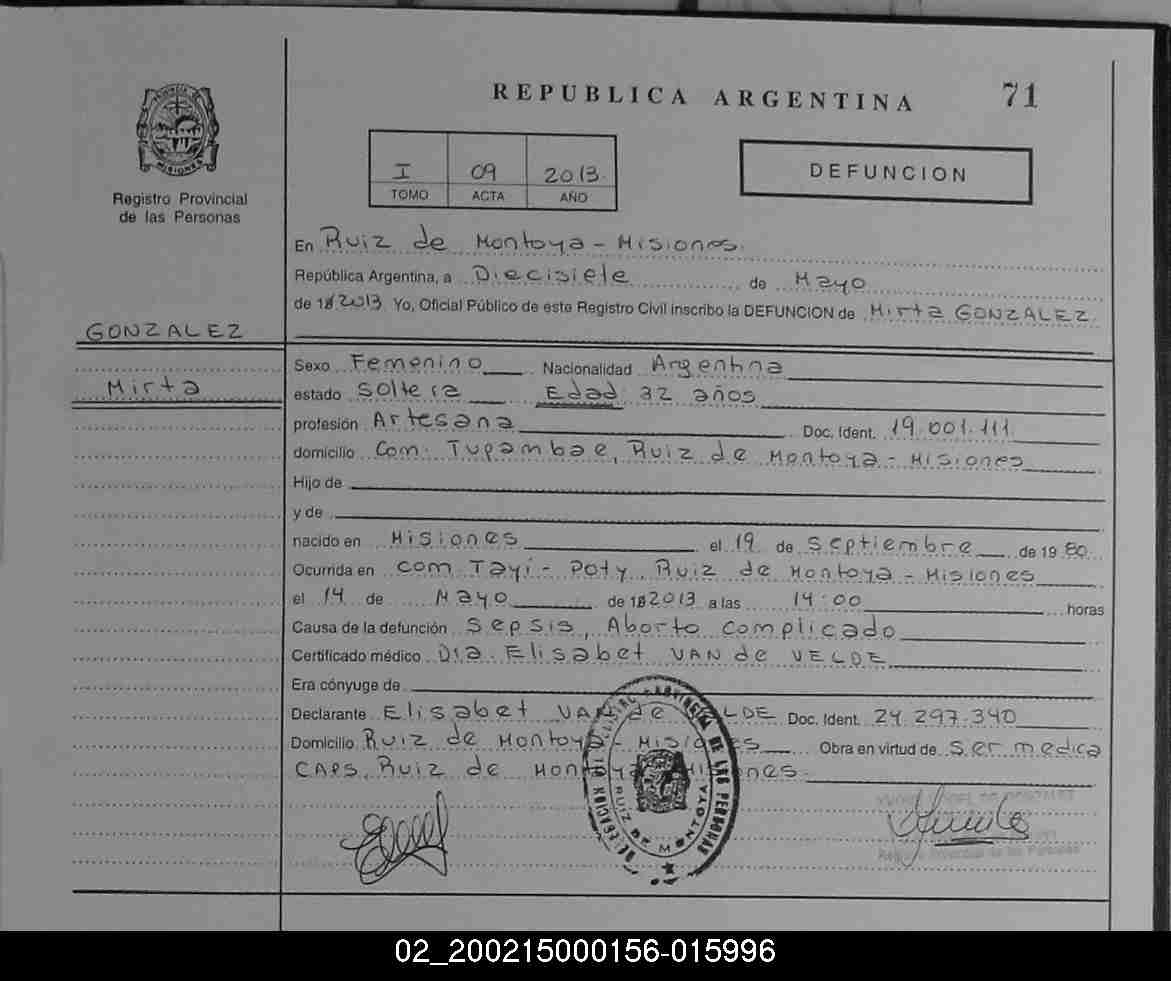 REPUBLICA ARGENTINA
71
PROVINCIA DE
MISIONES
Registro Provincial
de las Personas
I 09 2013
TOMO ACTA AÑO
DEFUNCION
En Ruiz de Montoya - Misiones.
República Argentina, a Diecisiete de Mayo
de 18 2013 Yo, Oficial Público de este Registro Civil inscribo la DEFUNCION de Mirta GONZALEZ
GONZALEZ
Mirta
Sexo Femenino Nacionalidad Argentina
estado soltera Edad: 32 años
profesión Artesana Doc. Ident. 19.001.111
domicilio Com. Tupambae, Ruiz de Montoya - Misiones
Hijo de
y de
nacido en Misiones el 19 de Septiembre de 19 80
Ocurrida en com Tayi - Poty, Ruiz de Montoya - Misiones
el 14 de Mayo de 18 2013 a las 14:00 horas
Causa de la defunción Sepsis, Aborto complicado
Certificado médico Dra. Elisabet VAN de VELDE
Era cónyuge de
Declarante Elisabet VAN de VELDE Doc. Ident. 24.297.340
Domicilio Ruiz de Montoya - Misiones Obra en virtud de ser medica
CAPS, Ruiz de Montoya Misiones.
PROVINCIAL DE LAS PERSONAS
DELEGACION
RUIZ DE MONTOYA
02_200215000156-015996